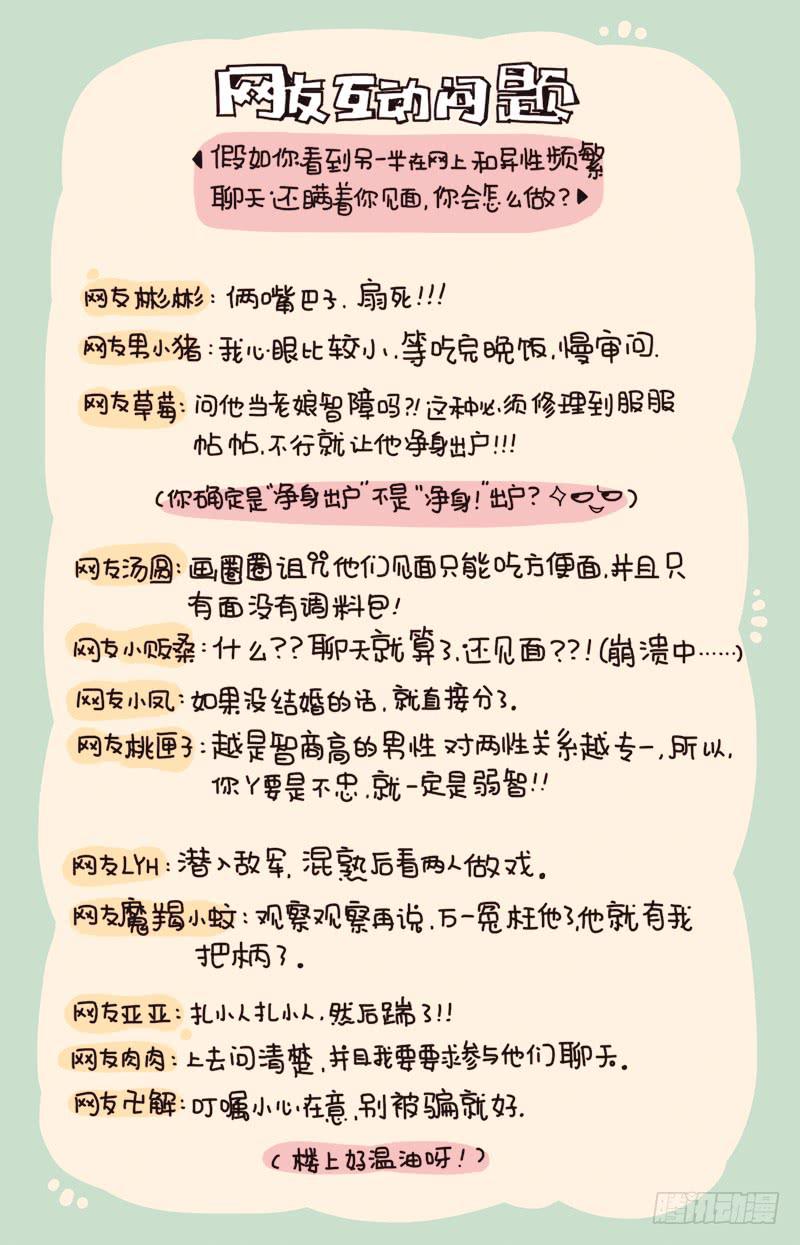 网友互动问题
假如你看到另一半在网上和异性频繁
聊天还瞒着你见面,你会怎么做?
网友彬彬:俩嘴巴子、扇死!!!
网友男小猪:我心眼比较小、等吃完晚饭,慢审问.
网友草莓:问他当老娘智障吗?!这种必须修理到服服
帖帖,不行就让他净身出户!!!
(你确定是“净身出户”不是“净身!”出户?)
网友汤圆:画圈圈诅咒他们见面只能吃方便面,并且只
有面没有调料包!
网友小贩桑:什么??聊天就算了,还见面??!(崩溃中……)
网友小凤:如果没结婚的话,就直接分了.
网友桃匣子:越是智商高的男性对两性关系越专一,所以,
你丫要是不忠,就一定是弱智!!
网友LYH:潜入敌军,混熟后看两人做戏。
网友魔羯小蚊:观察观察再说,万一冤枉他了,他就有我
把柄了。
网友亚亚:扎小人扎小人,然后踹了!!
网友肉肉:上去问清楚,并且我要要求参与他们聊天。
网友卍解:叮嘱小心在意,别被骗就好.
(楼上好温油呀!)
腾讯动漫